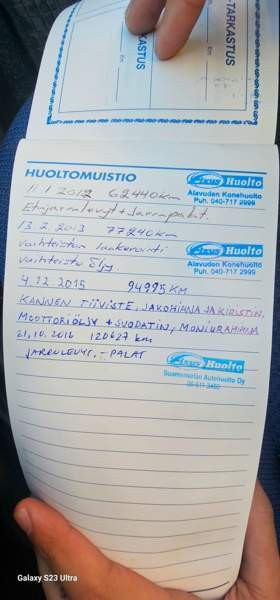 -TARKASTUS
KASTUS
Km
HUOLTOMUISTIO
Huolto
Alavuden Konehuolto
Puh. 040-717 2999
11.1 2012 62440km
Etujarrulevyt + Jarrupalat.
13.2.2013 77240km
Vaihteiston laakerointi
Vaihteisto Öljy
Huolto
Alavuden Konehuolto
Puh. 040-717 2999
4.12.2015 94995 KM
KANNEN TIIVISTE, JAKOHIHNA JA KIRISTIN,
MOOTTORIÖLJY + SUODATIN, MONIURAHIHNA
21.10.2016 120627 km
JARRULEVYT, -PALAT
Huolto
Autohuolto Oy
Galaxy S23 Ultra